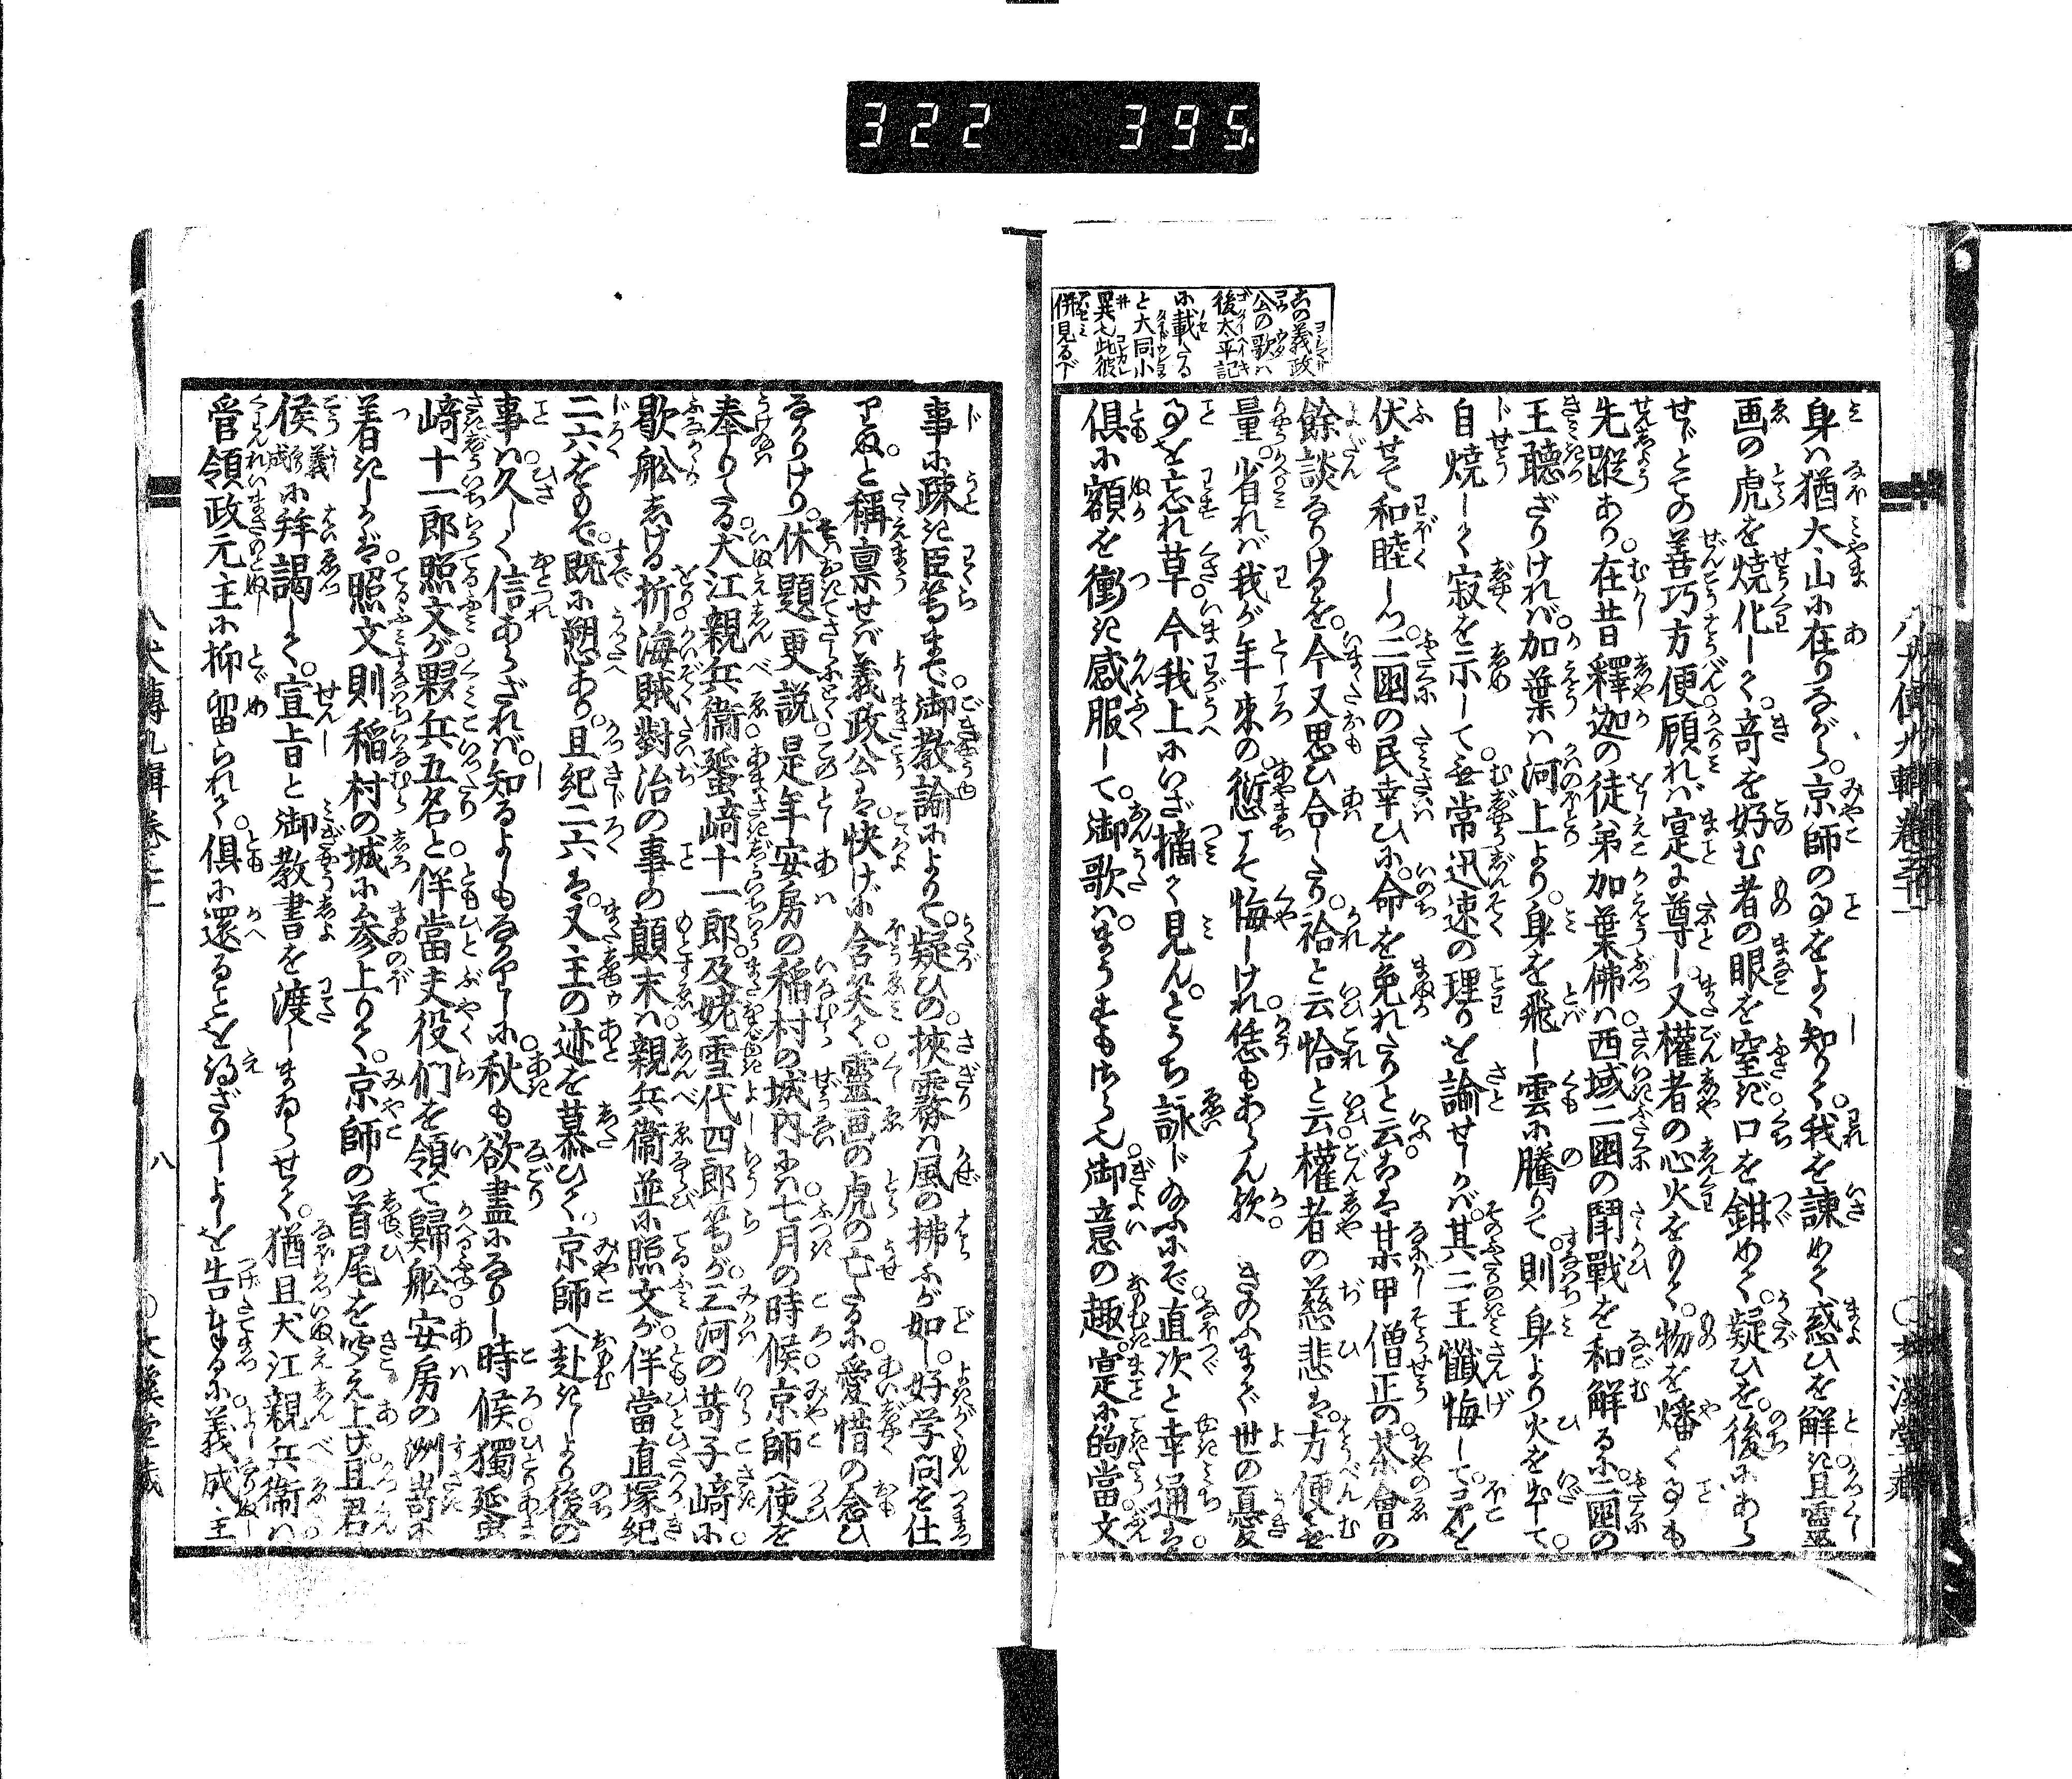 322 395
この義政
公の歌ハ
後太平記
に載たる
と大同小
異也此彼
併見るべし
身ハ猶大山に在りながら。京師の事をよく知りて。我を諌めて惑ひを解き。且靈
画の虎を焼化して。奇を好む者の眼を窒ぎ口を鉗めて。疑ひを。後にあら
せじとての善巧方便。顧れバ寔に尊し。又權者の心火をもて。物を燔く事も
先蹤あり。在昔釋迦の徒弟加葉佛ハ。西域二國の鬪戰を和解るに。二國の
王聴ざりけれバ。加葉ハ河上より。身を飛し雲に騰りて。則身より火を出て。
自焼して寂を示して。無常迅速の理りを諭せしかバ。其二王懺悔して。戈を
伏せて和睦しつ。二國の民幸ひに。命を免れたりと云。こは某甲僧正の。茶會の
餘談なりけるを。今又思ひ合したり。袷と云恰と云。權者の慈悲は。方便無
量。省れバ我が年来の。愆こそ悔しけれ。恁もあらん歟。きのふまで世の憂
事を忘れ草。今我上にいざ摘て見ん。とうち詠じ給ふにぞ。直次と幸通は。
倶に額を衝き感服して。御歌ハまうすもさら也。御意の趣。寔に的當。文
事に疎き臣等まで。御教諭によりて。疑ひの。挾霧ハ風の拂ふが如し。好学問を仕
りぬ。と稱禀せバ義政公は。快げに含笑て。靈画の虎の亡たるに。愛惜の念ひ
なかりけり。休題更説是年安房の稲村の城内にハ。七月の時候京師へ使を
奉りたる。犬江親兵衞。蜑﨑十一郎。及姥雪代四郎等が。三河の苛子﨑に
歇舩しける折。海賊對治の事の顛末ハ。親兵衞並に照文が。伴當直塚紀
二六をもて。既に愬あり。且紀二六は。又主の迹を慕ひて。京師へ赴きしより後の
事ハ。久しく信あらざれバ。知るよしもなかりしに。秋も欲盡になりし時候。獨蜑
﨑十一郎照文が。夥兵五名と伴當夫役们を領て歸舩。安房の洲嵜に
着きしかば。照文則稲村の城に参上りて。京師の首尾を聞え上げ。且君
侯義成に拜謁して。宣旨と御教書を渡しまゐらせて。猶且犬江親兵衞ハ
管領政元主に抑留られて。倶に還ることを得ざりしよしを告まうすに。義成主
八犬傳九輯卷三十一
八
○文溪堂藏